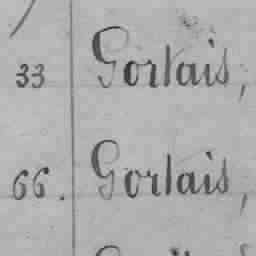 33 Gortais,
66. Gortais,